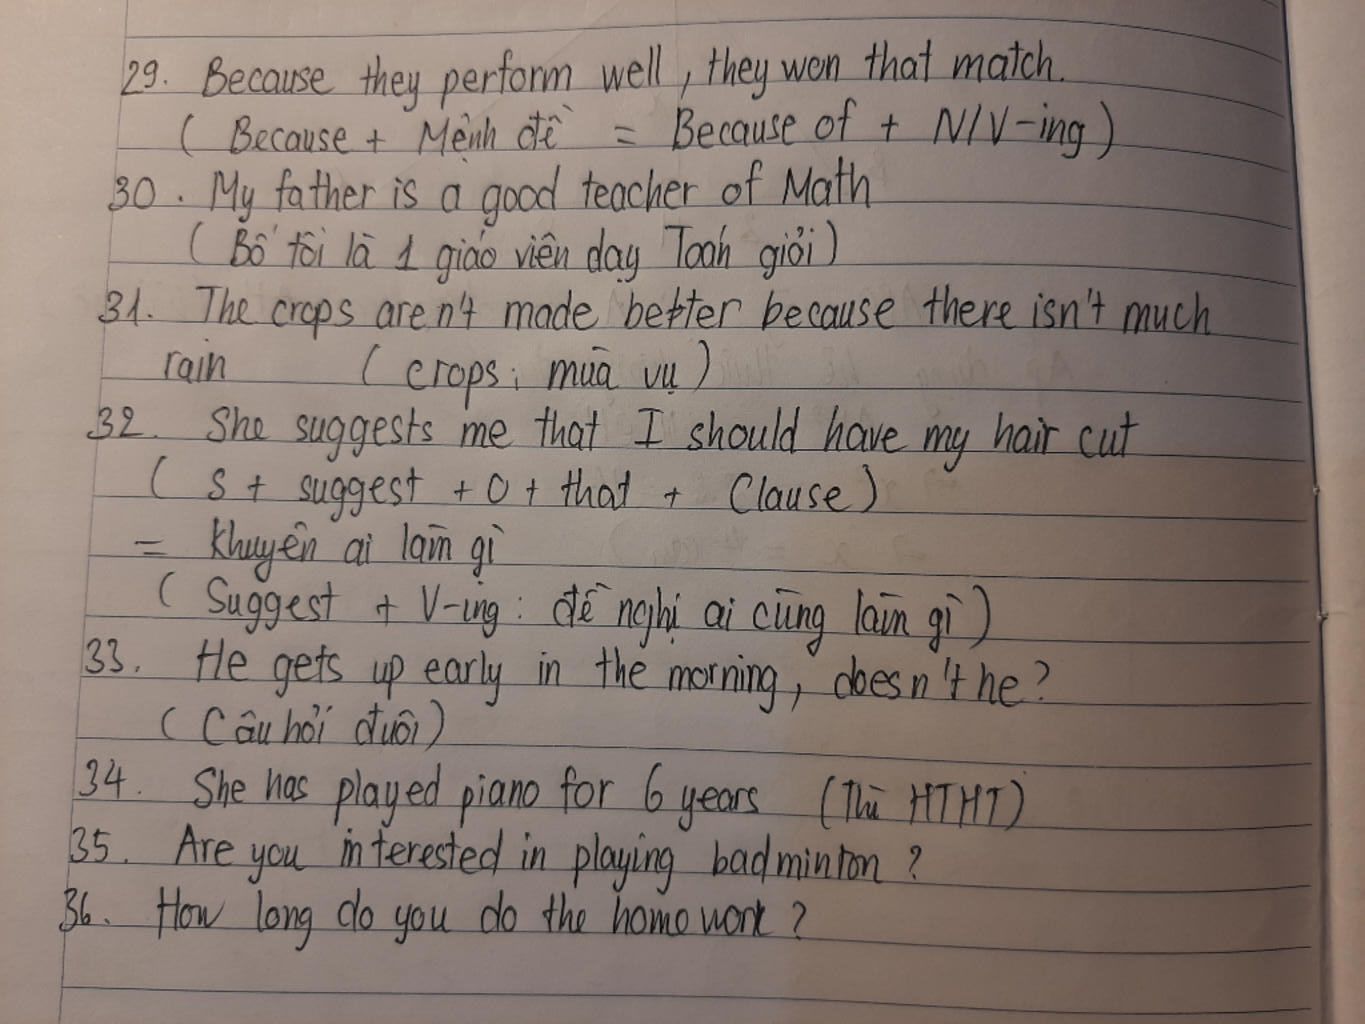 29. Because they perform well, they won that match.
( Because + Mệnh đề = Because of + N/V-ing )
30. My father is a good teacher of Math
( Bố tôi là 1 giáo viên dạy Toán giỏi )
31. The crops aren't made better because there isn't much
rain ( crops: mùa vụ )
32. She suggests me that I should have my hair cut
( S + suggest + O + that + Clause )
= Khuyên ai làm gì
( Suggest + V-ing : đề nghị ai cùng làm gì )
33. He gets up early in the morning, doesn't he?
( Câu hỏi đuôi )
34. She has played piano for 6 years (Thì HTHT)
35. Are you interested in playing badminton?
36. How long do you do the homework?